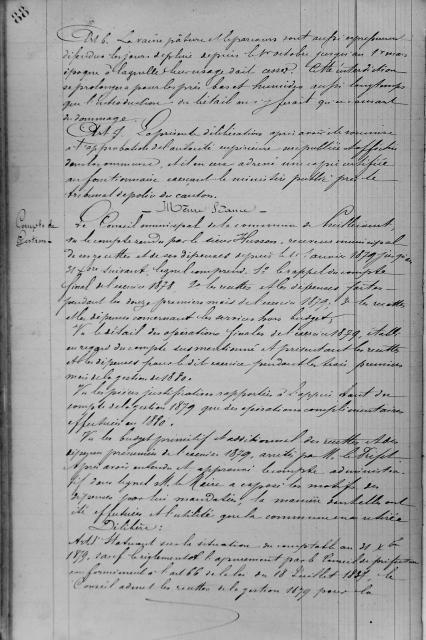 88
Art 6. La vaine pâture et le parcours sont aussi expressément
défendus les jours de pluie depuis le 1er octobre jusqu'au 1er mars
époque à laquelle leur usage doit cesser. Cette interdiction
se prolongera pour les prés bas et humides aussi longtemps
que l'introduction du bétail on y ferait qu'on causant
de dommage.
Art 7. La présente délibération après avoir été soumise
à l'approbation de l'autorité supérieure sera publiée et affichée
dans la commune, et il en sera adressé une copie certifiée
au fonctionnaire exerçant le ministère public près le
tribunal de police du canton.
Même Séance
Compte de
Gestion
Le Conseil municipal de la commune de
Vu le compte rendu par le sieur Husson, receveur municipal
de ses recettes et de ses dépenses depuis le 1er janvier 1879 jusqu'au
31 Xbre suivant, lequel comprend: 1° le rappel du compte
final de l'exercice 1878 2° les recettes et les dépenses faites
pendant les douze premiers mois de l'exercice 1879; 3° les recettes
et les dépenses concernant les services hors budget;
Vu le détail des opérations finales de l'exercice 1879, établi
en regard du compte susmentionné et présentant les recettes
et les dépenses faites le dit exercice pendant les trois premiers
mois de la gestion de 1880.
Vu les pièces justificatives rapportées à l'appui tant du
compte de la gestion 1879 que des opérations complémentaires
effectuées en 1880.
Vu les budgets primitif et additionnel des recettes et des
dépenses présumées de l'exercice 1879, arrêtés par M. le Préfet
Après avoir entendu et approuvé le compte administra-
tif dans lequel M. le Maire a exposé les motifs des
dépenses par lui mandatées, la manière dont elles ont
été effectuées et l'utilité que la commune en a retirée
Délibère:
Art 1er Statuant sur la situation du comptable au 31 Xbre
1879, sauf le règlement et l'apurement par le Conseil de préfecture
conformément à l'art 66 de la loi du 18 Juillet 1837, le
Conseil admet les recettes de la gestion 1879 pour la